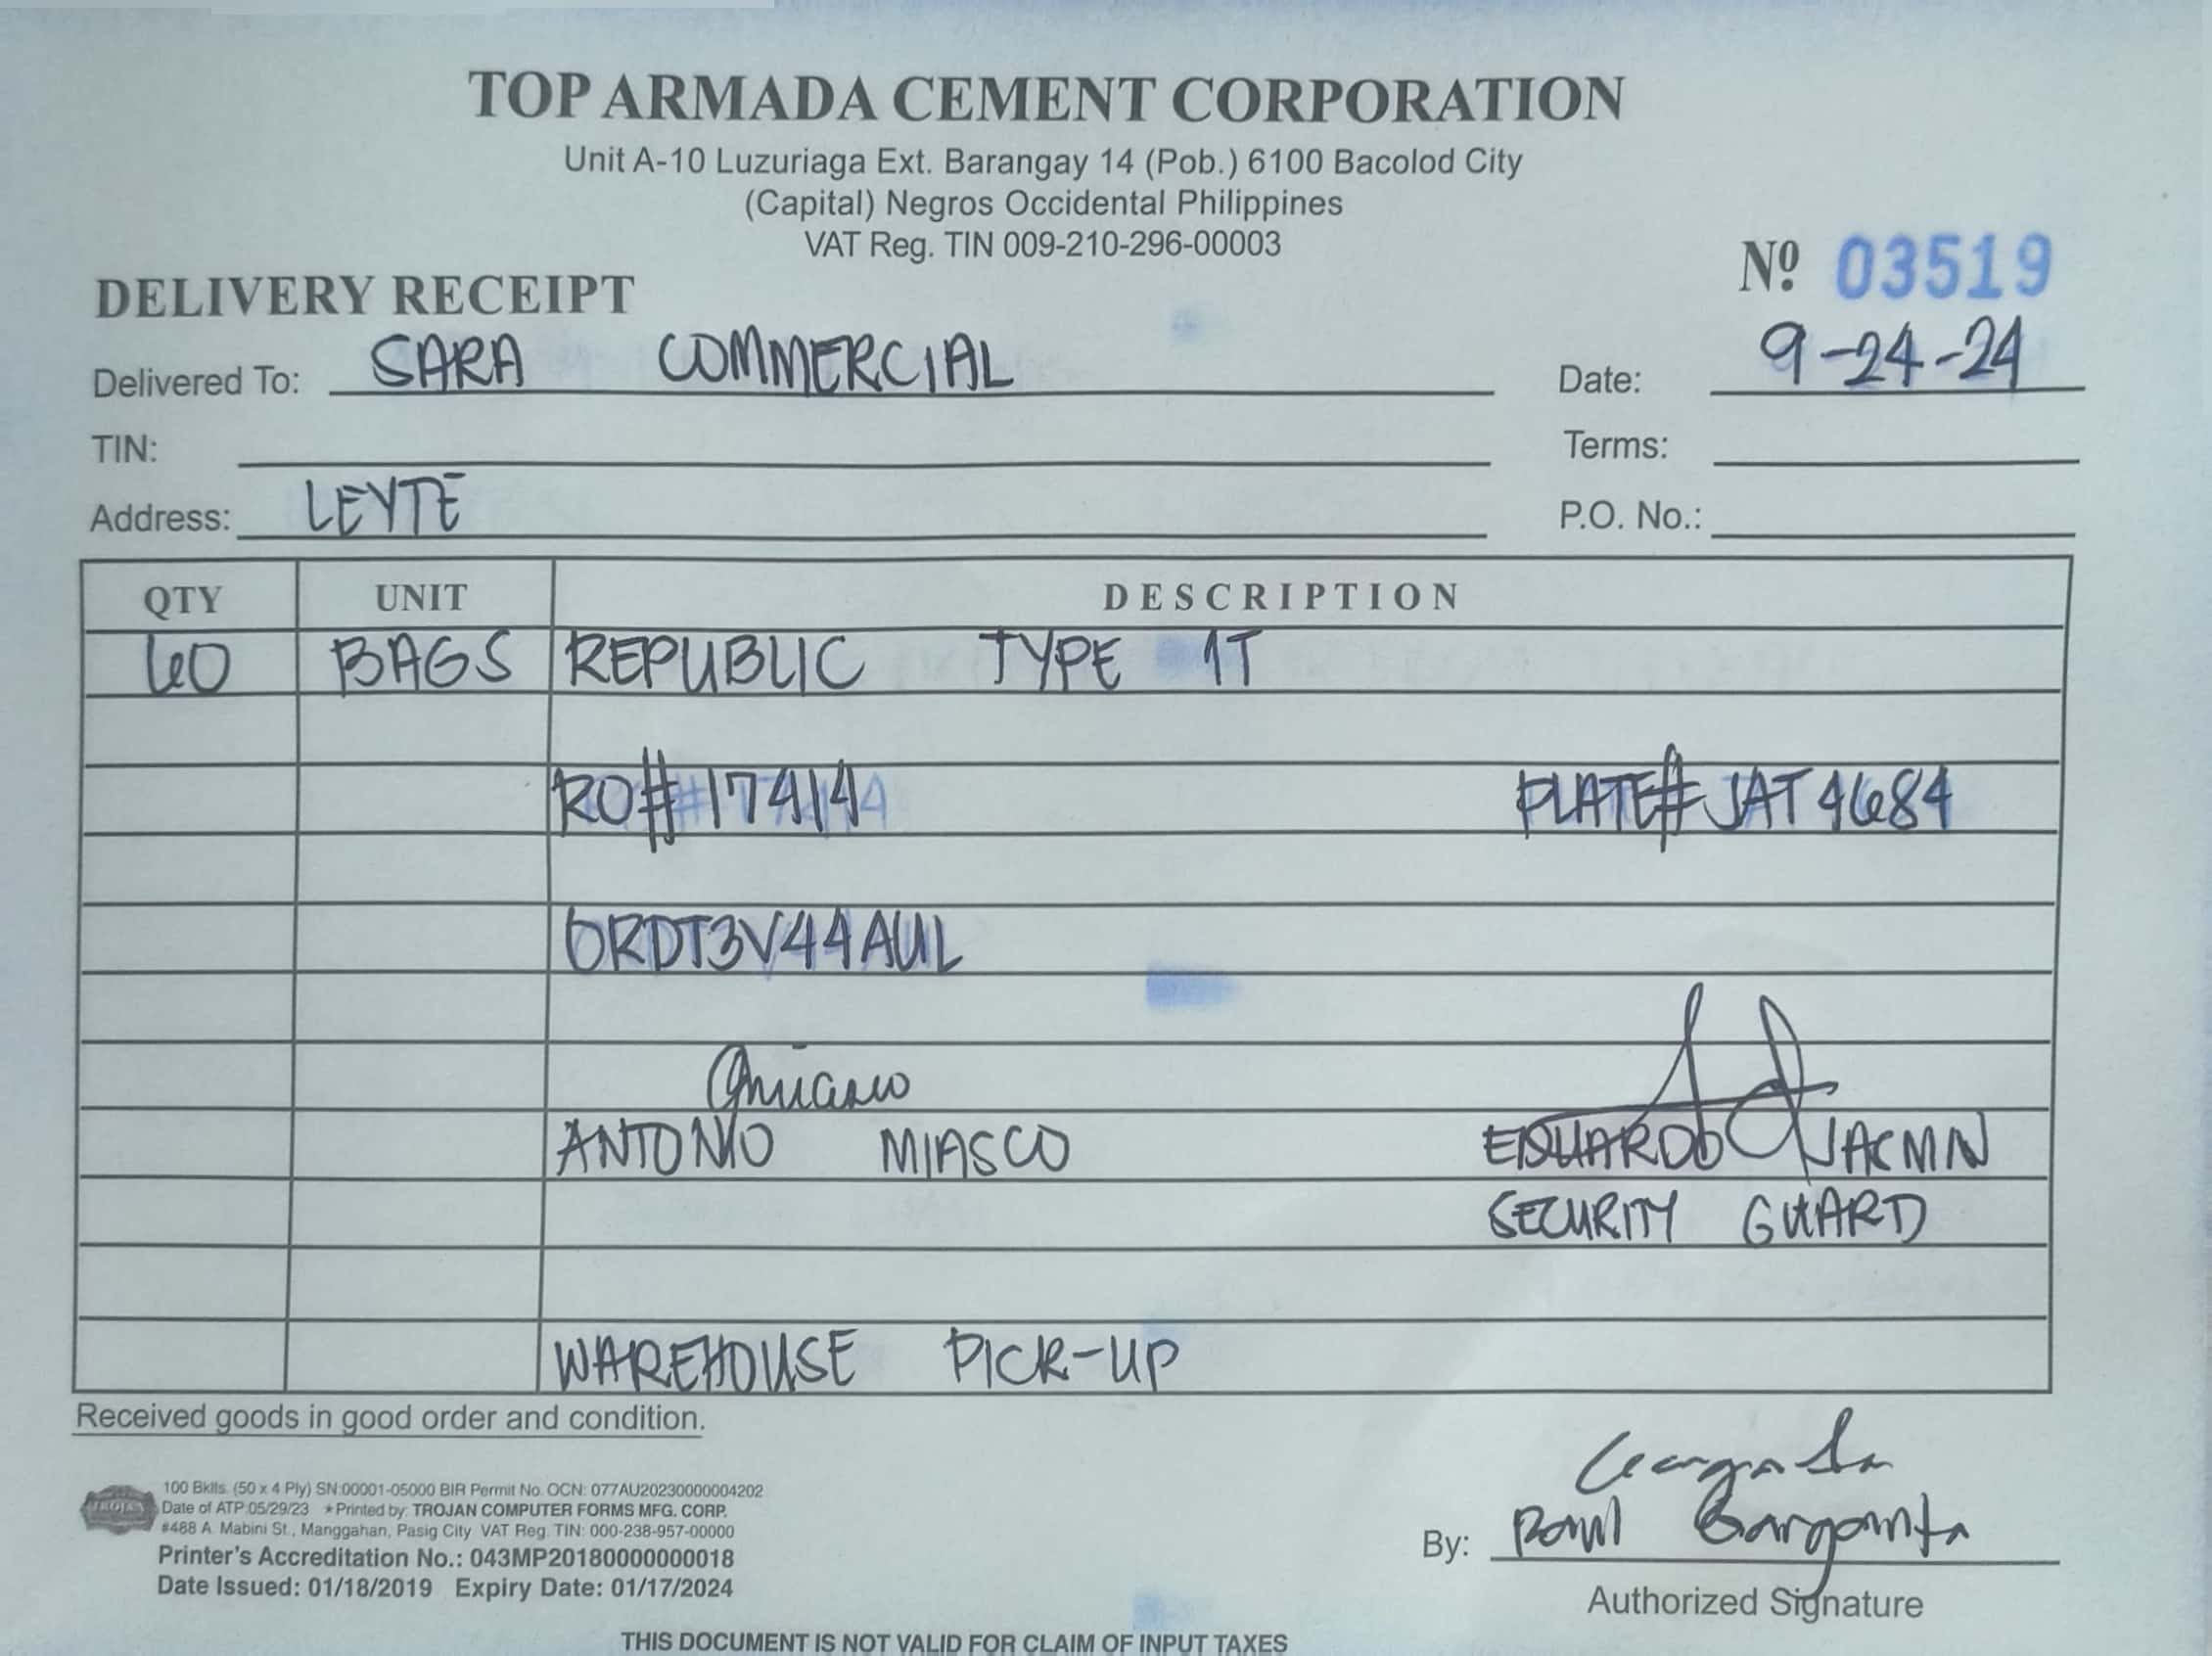 TOP ARMADA CEMENT CORPORATION
Unit A-10 Luzuriaga Ext. Barangay 14 (Pob.) 6100 Bacolod City
(Capital) Negros Occidental Philippines
VAT Reg. TIN 009-210-296-00003
Nº 03519
DELIVERY RECEIPT
Delivered To: SARA COMMERCIAL Date: 9-24-24
TIN: Terms:
Address: LEYTE P.O. No.:
QTY UNIT DESCRIPTION
60 BAGS REPUBLIC TYPE 1T
RO#17414 PLATE# JAT4684
ORDT3V44AUL
ANTONIO MIASCO EDUARDO JACMN
SECURITY GUARD
WAREHOUSE PICK-UP
Received goods in good order and condition.
100 Bklts. (50 x 4 Ply) SN:00001-05000 BIR Permit No. OCN: 077AU20230000004202
TROJAN Date of ATP:05/29/23 ★Printed by: TROJAN COMPUTER FORMS MFG. CORP.
#488 A. Mabini St., Manggahan, Pasig City VAT Reg. TIN: 000-238-957-00000
Printer's Accreditation No.: 043MP20180000000018
Date Issued: 01/18/2019 Expiry Date: 01/17/2024
By: Paul Garganta
Authorized Signature
THIS DOCUMENT IS NOT VALID FOR CLAIM OF INPUT TAXES